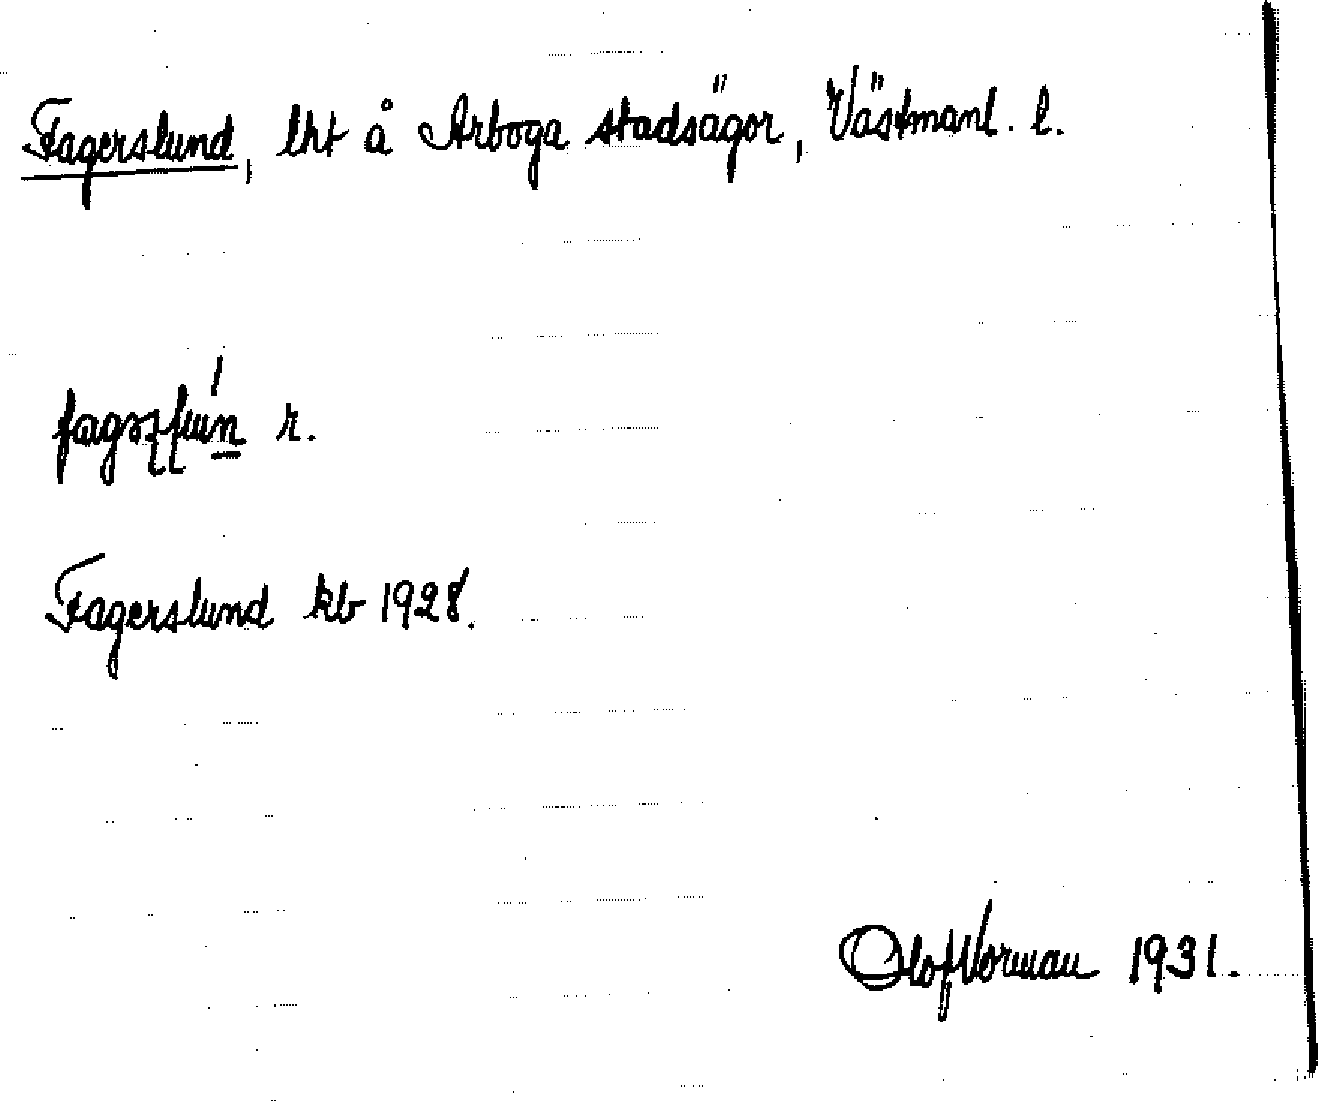 Fagerslund, lht å Arboga stadsägor, Västmanl. l.
r.
Fagerslund kb 1928.
Olof Norman 1931.